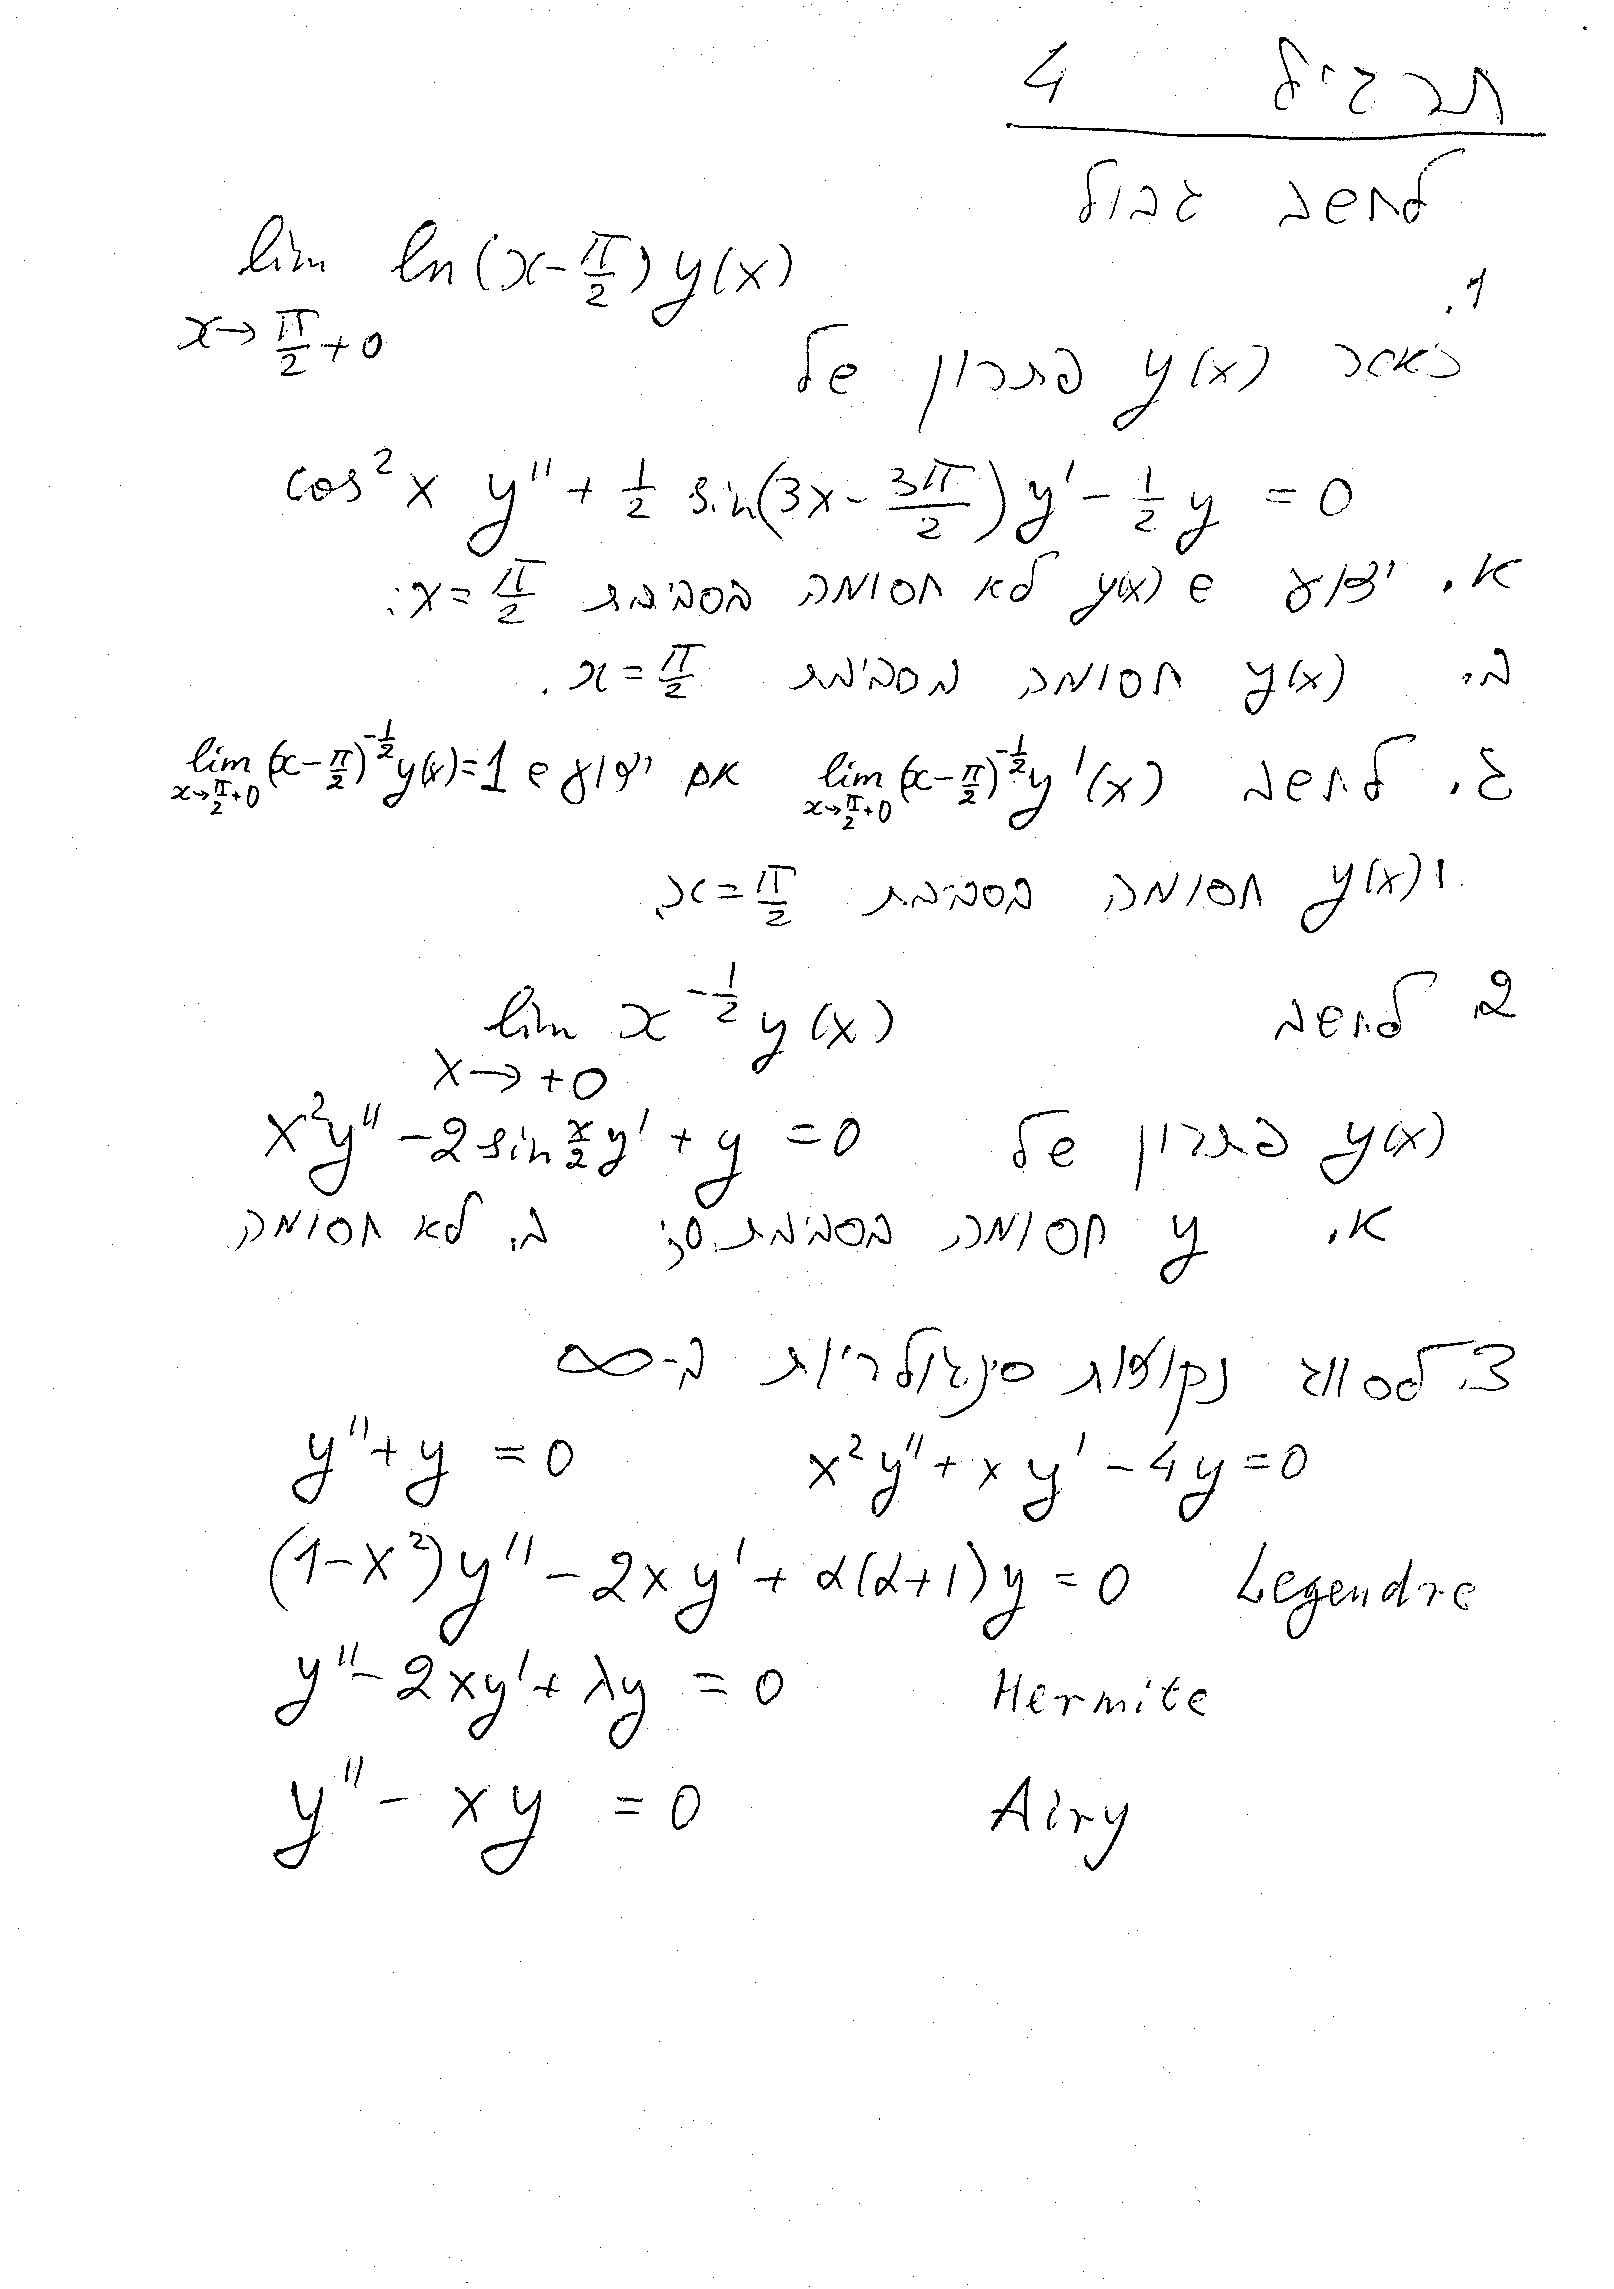 תרגיל 4
לחשב גבול
1. lim_{x→π/2+0} ln(x-π/2) y(x)
כאשר y(x) פתרון של
cos²x y'' + 1/2 sin(3x - 3π/2) y' - 1/2 y = 0
א. ידוע ש y(x) לא חסומה בסביבת x=π/2;
ב. y(x) חסומה בסביבת x=π/2.
ג. לחשב lim_{x→π/2+0} (x-π/2)^{-1/2} y'(x) אם ידוע ש lim_{x→π/2+0} (x-π/2)^{-1/2} y(x)=1
ו y(x) חסומה בסביבת x=π/2.
2. לחשב lim_{x→+0} x^{-1/2} y(x)
y(x) פתרון של x²y'' - 2 sin x/2 y' + y = 0
א. y חסומה בסביבת 0; ב. לא חסומה
3. לסווג נקודות סינגולריות ב-∞
x²y'' + xy' - 4y = 0 y'' + y = 0
(1-x²)y'' - 2xy' + α(α+1)y = 0 Legendre
y'' - 2xy' + λy = 0 Hermite
y'' - xy = 0 Airy